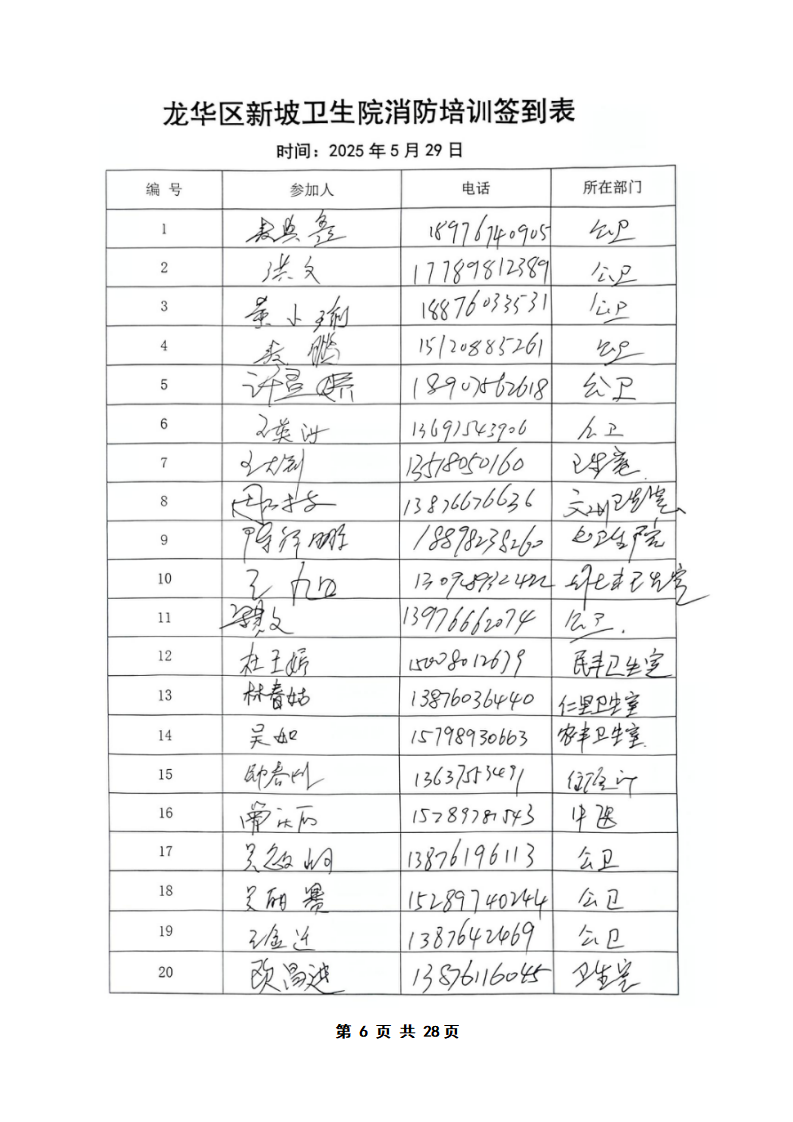 龙华区新坡卫生院消防培训签到表
时间：2025年5月29日
编号 参加人 电话 所在部门
1 18976740905 公卫
2 洪文 17789812389 公卫
3 黄小瑜 18876033531 公卫
4 15120885261 公卫
5 18907562618 公卫
6 王英 13697543906 公卫
7 13518050160 卫生室
8 13876676636 卫生室
9 18898238260 卫生院
10 王 卫生室
11 文 13976662074 公卫.
12 杜王娇 15008012679 民丰卫生室
13 林春姑 13876036440 仁里卫生室
14 吴如 15798930663 农丰卫生室
15 13637553491
16 15289781543 中医
17 吴 13876196113 公卫
18 吴丽赛 15289740244 公卫
19 王金迁 1387642469 公卫
20 欧昌迪 13876116045 卫生室
第 6 页 共 28页